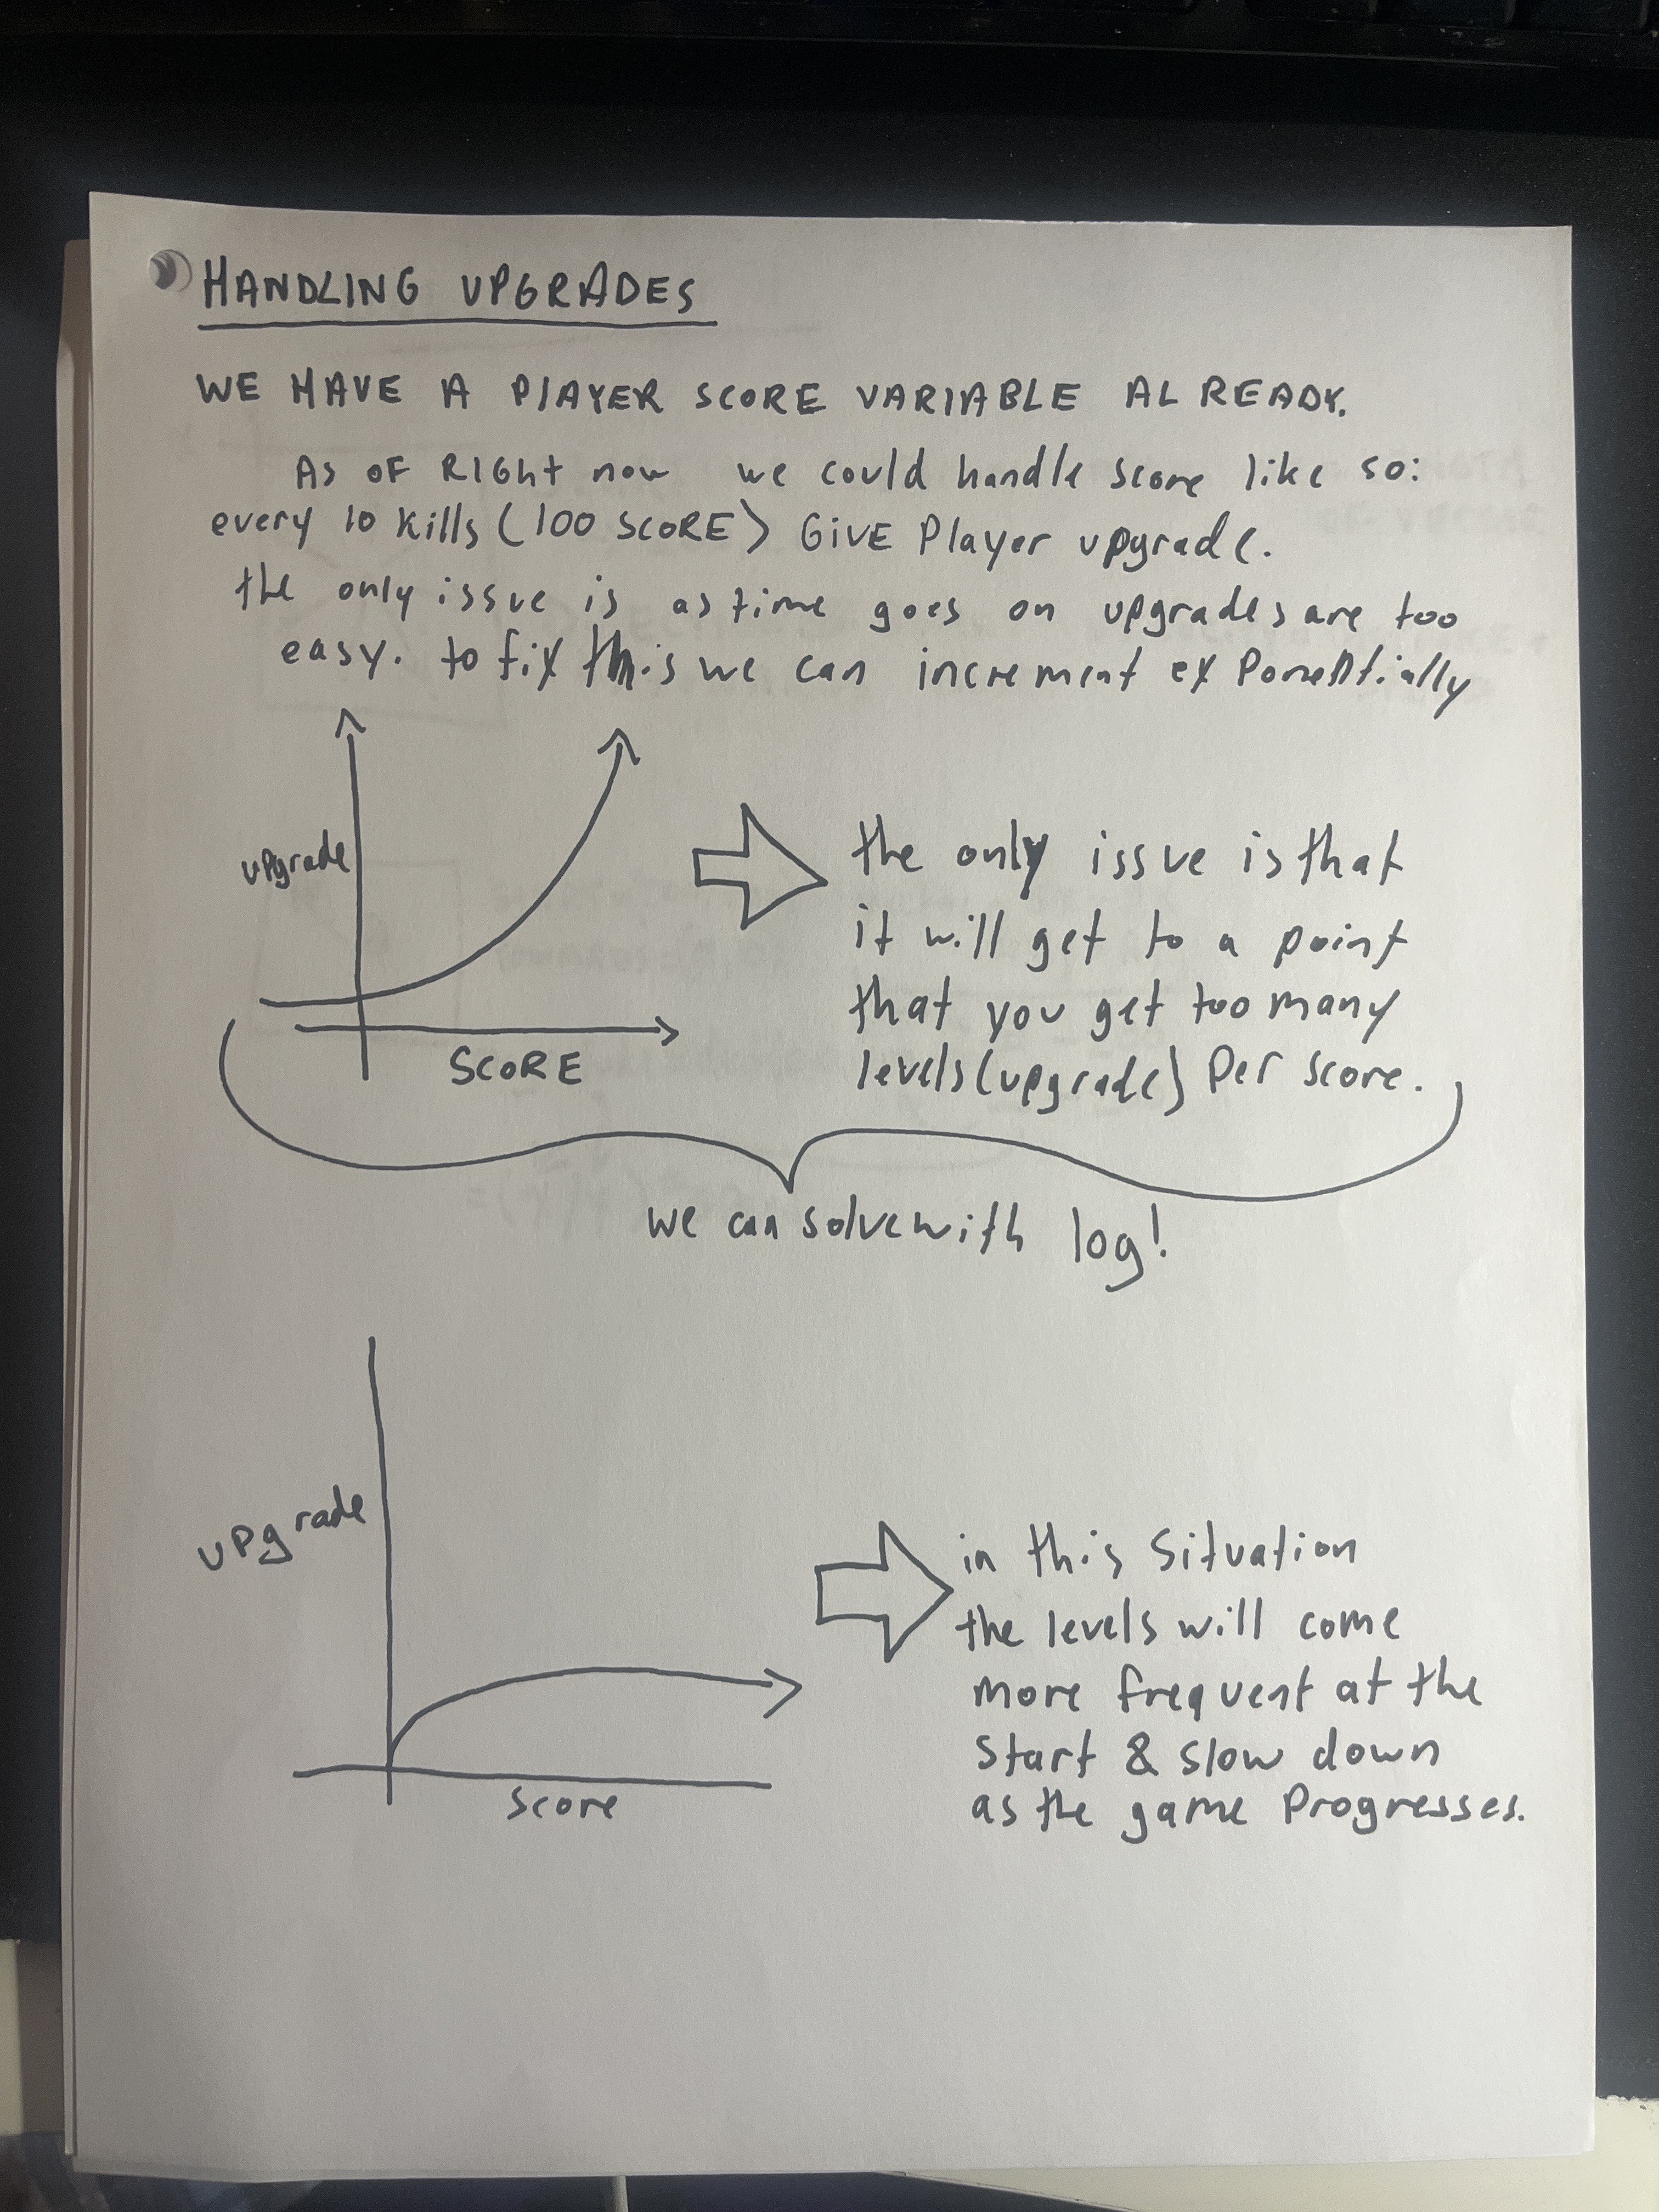 HANDLING UPGRADES
WE HAVE A PLAYER SCORE VARIABLE ALREADY.
As OF RIGht now we could handle score like so:
every 10 kills (100 SCORE) GIVE Player upgrade.
the only issue is as time goes on upgrades are too
easy. to fix this we can increment exponentially
upgrade
SCORE
the only issue is that
it will get to a point
that you get too many
levels (upgrade) per score.
we can solve with log!
upgrade
Score
in this situation
the levels will come
more frequent at the
start & slow down
as the game progresses.